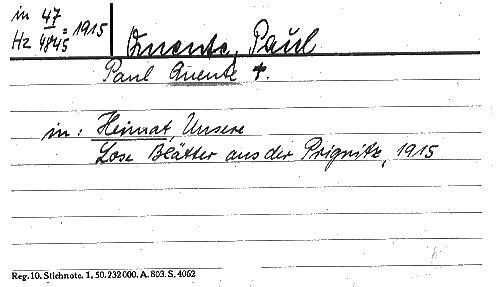 in 47
Hz 4845 = 1915
Quente, Paul
Paul Quente †.
in: Heimat, Unsere
Lose Blätter aus der Prignitz, 1915
Reg. 10. Stichnote. 1, 50. 232000. A. 803. S. 4062